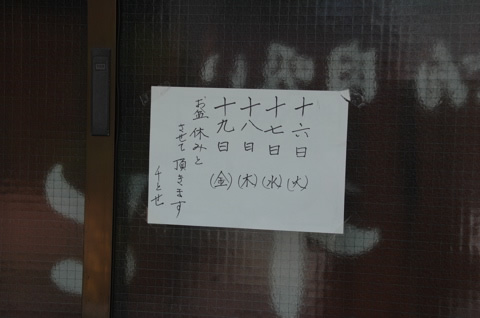 十六日(火)
十七日(水)
十八日(木)
十九日(金)
お盆休みと
させて頂きます
千とせ